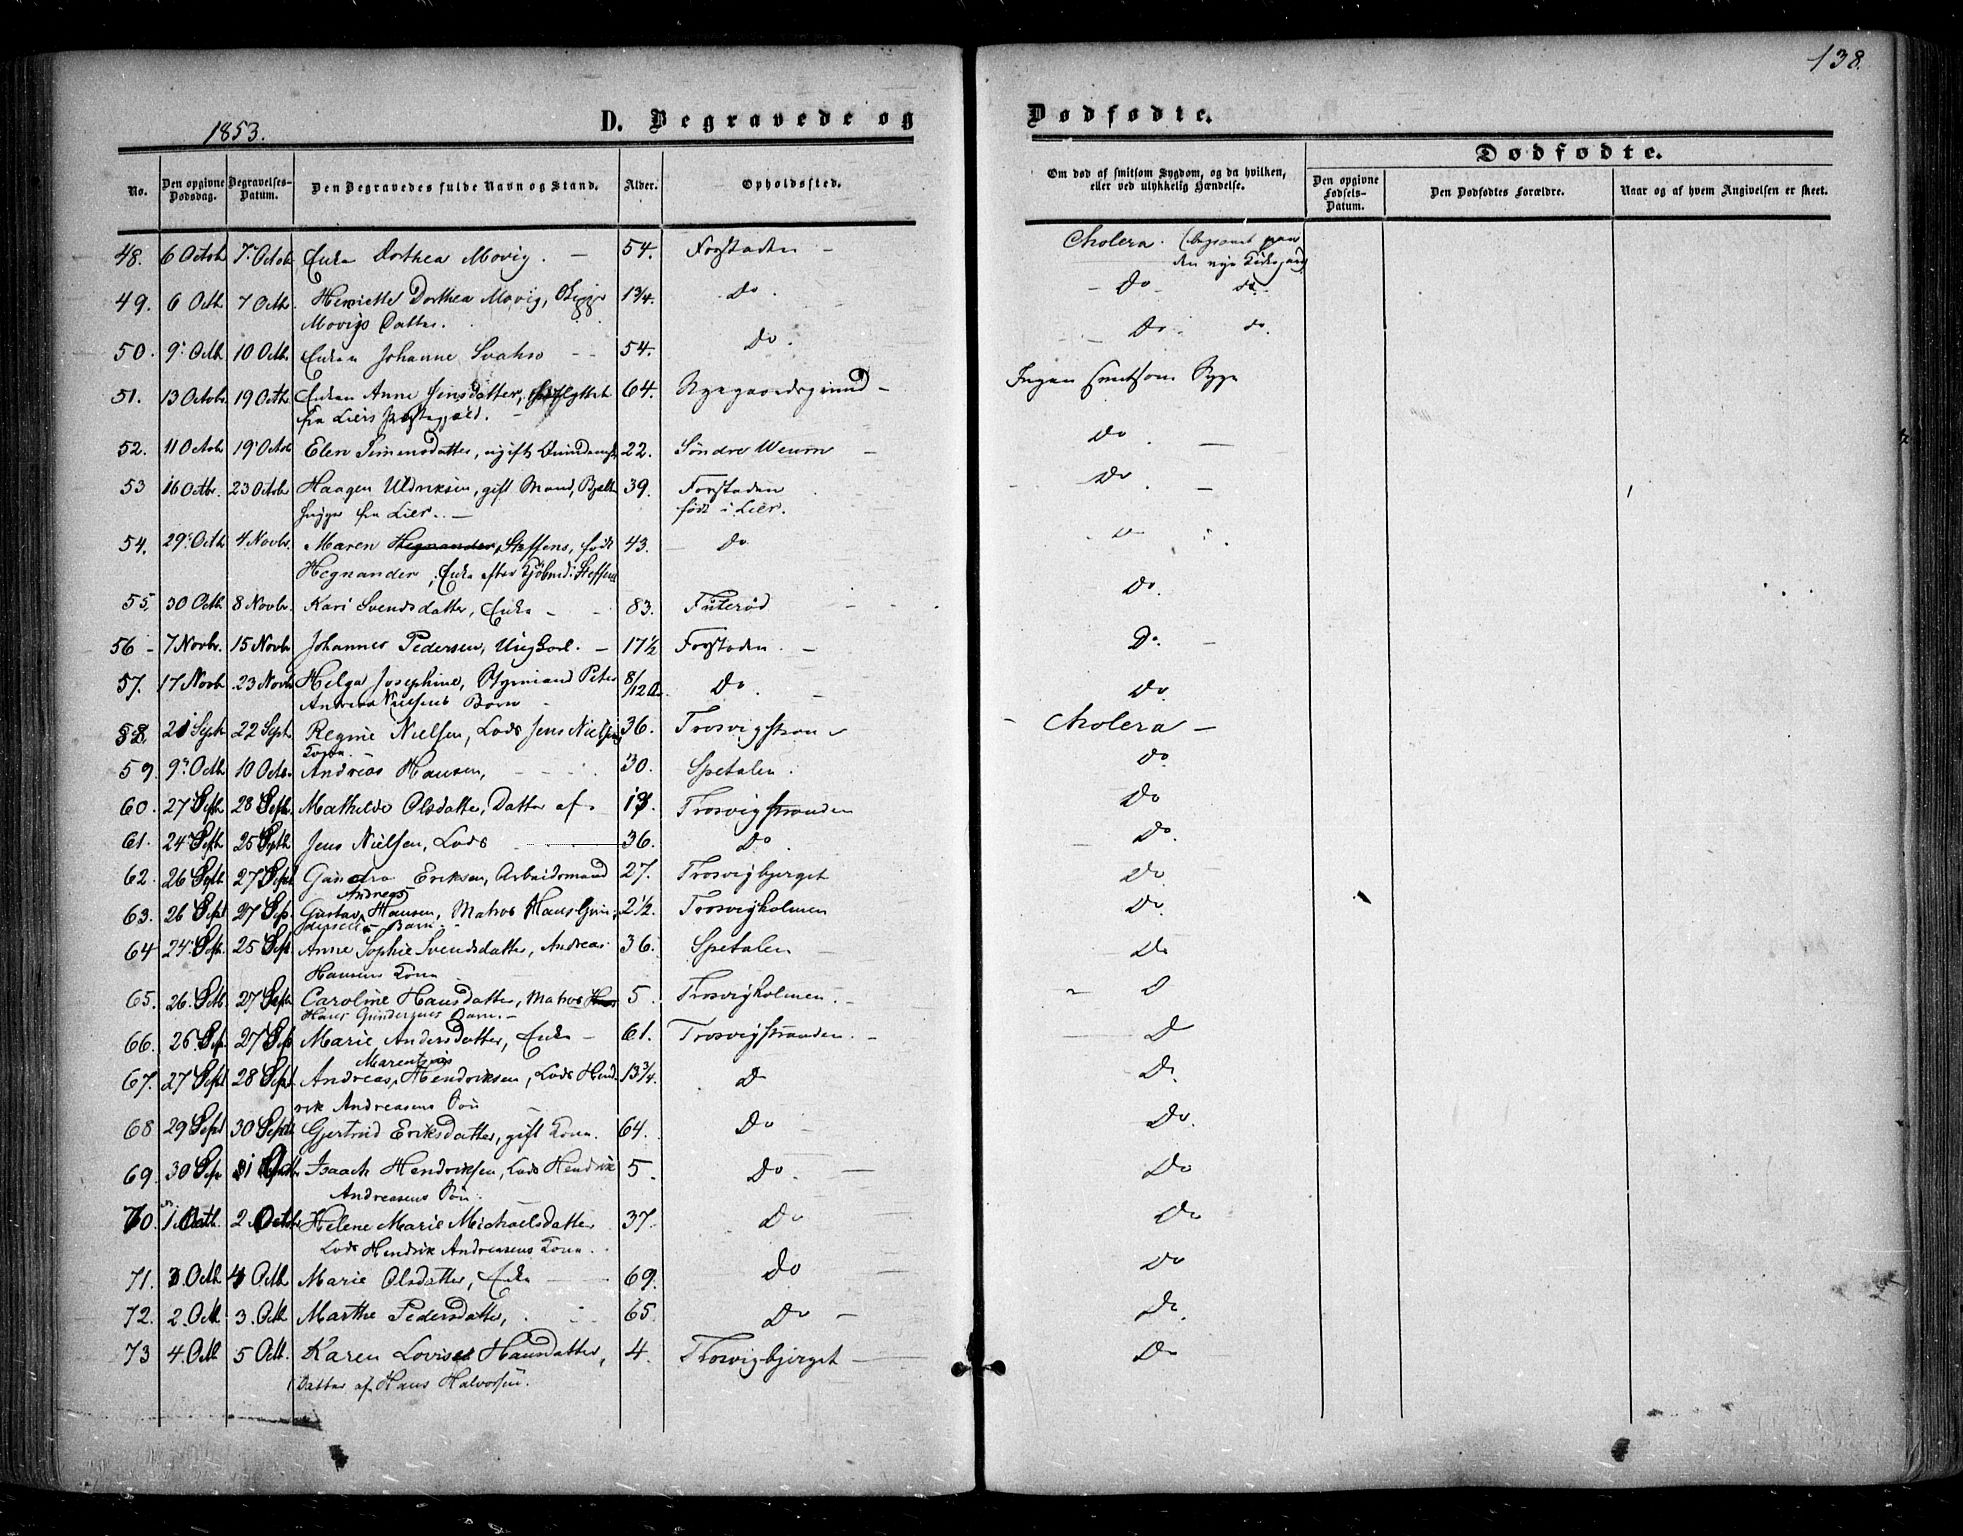 138.
1853.
D. Begravede og
Dødfødte.
Dødfødte.
No.
Den opgivne Dødsdag.
Begravelses-Datum.
Den Begravedes fulde Navn og Stand.
Alder.
Opholdssted.
Om død af smitsom Sygdom, og da hvilken,
eller ved ulykkelig Hændelse.
Den opgivne Fødsels-Datum.
Den Dødfødtes Forældre.
Naar og af hvem Angivelsen er skeet.
48. 6 Octob 7 Octob Enke Dorthea Movig. 54. Forstaden - Cholera. (begravet paa
den nye Kirkegaard)
49. 6 Octb 7 Octb. Henriette Dorthea Movig, 1 3/4. Do. Do do.
Movigs Datter.
50. 9 Octb 10 Octb. Enken Johanne 54. Do. Do do.
51. 13 Octobr. 19 Octbr Enken Anne Jensdatter, 64. Nygaardsgrund - Ingen smitsom Syge
fra Liers Præstegjeld.
52. 11 Octobr 19 Octob Elen Simensdatter, ugift 22. Søndre Weum - Do.
53 16 Octbr. 23 Octobr Haagen Uldriksen, gift Mand, 39. Forstaden Do
fra Lier. født i Lier.
54. 29 Octb 4 Novbr. Maren Hegnander, Steffens, født 43. Do
Hegnander, Enke efter Kjøbmd: Steffens
55. 30 Octb 8 Novbr. Kari Svendsdatter, Enke - 83. Futerød Do.
56 - 7 Novbr. 15 Novbr Johannes Pedersen, Ung Karl. 17 1/2 Forstaden. - Do. -
57. 17 Novb 23 Novb Helga Josephine, Peter 8/12 Do. Do
Andreas Nielsens Barn -
58. 21 Sept 22 Sept. Regine Nielsen, Lods Jens Nielsens 36. Trosvigstran Cholera -
Kone. -
59. 9 Octb 10 Octo. Andreas Hansen, 30. Spetalen. Do.
60. 27 Septb 28 Septb. Mathilde Olsdatter, Datter af - 13. Trosvigstranden Do
61. 24 Septb 25 Septb Jens Nielsen, Lods 36. Do. Do.
62. 26 Septb 27 Sept Eriksen, Arbeidsmand 27. Trosvigbjerget Do
Andreas
63. 26 Sept 27 Sep. Gustav Hansen, Matros Hans Gun- 2 1/2. Trosvigholmen Do.
Barn. -
64 24 Sep. 25 Sep. Anne Sophie Svendsdatter, Andreas 36. Spetalen - Do
Hansens Kone
65. 26. Setb 27 Septb Caroline Hansdatter, Matros 5. Trosvigholmen. - D
Hans Gundersens Barn. -
66. 26. Sep. 27 Sep Marie Andersdatter, Enke - 61. Trosvigstranden. - D
67. 27 Sept 28 Sept. Andreas Hendriksen, Lods Hend- 13 3/4. D Do.
rik Andreasens Søn
68 29 Sept 30 Septb Gjertrud Eriksdatter, gift Kone. 64. Do - Do.
69. 30 Sep Isaach Hendriksen, Lods Hendrik 5. Do. - Do
Andreasens Søn.
70. 1. Octb. 2 Octob Helene Marie Michaelsdatter 37. Do Do
Lods Hendrik Andreasens Kone.
71. 3. Octb 4 Octb Marie Olsdatter, Enke 69. Do Do
72. 2. Octb 3. Octb Marthe Pedersdatter, 65. Do - Do.
73 4. Octb 5 Octb. Karen Lovise Hansdatter, 4. Trosvigbjerget - Do
Datter af Hans Halvorsen.